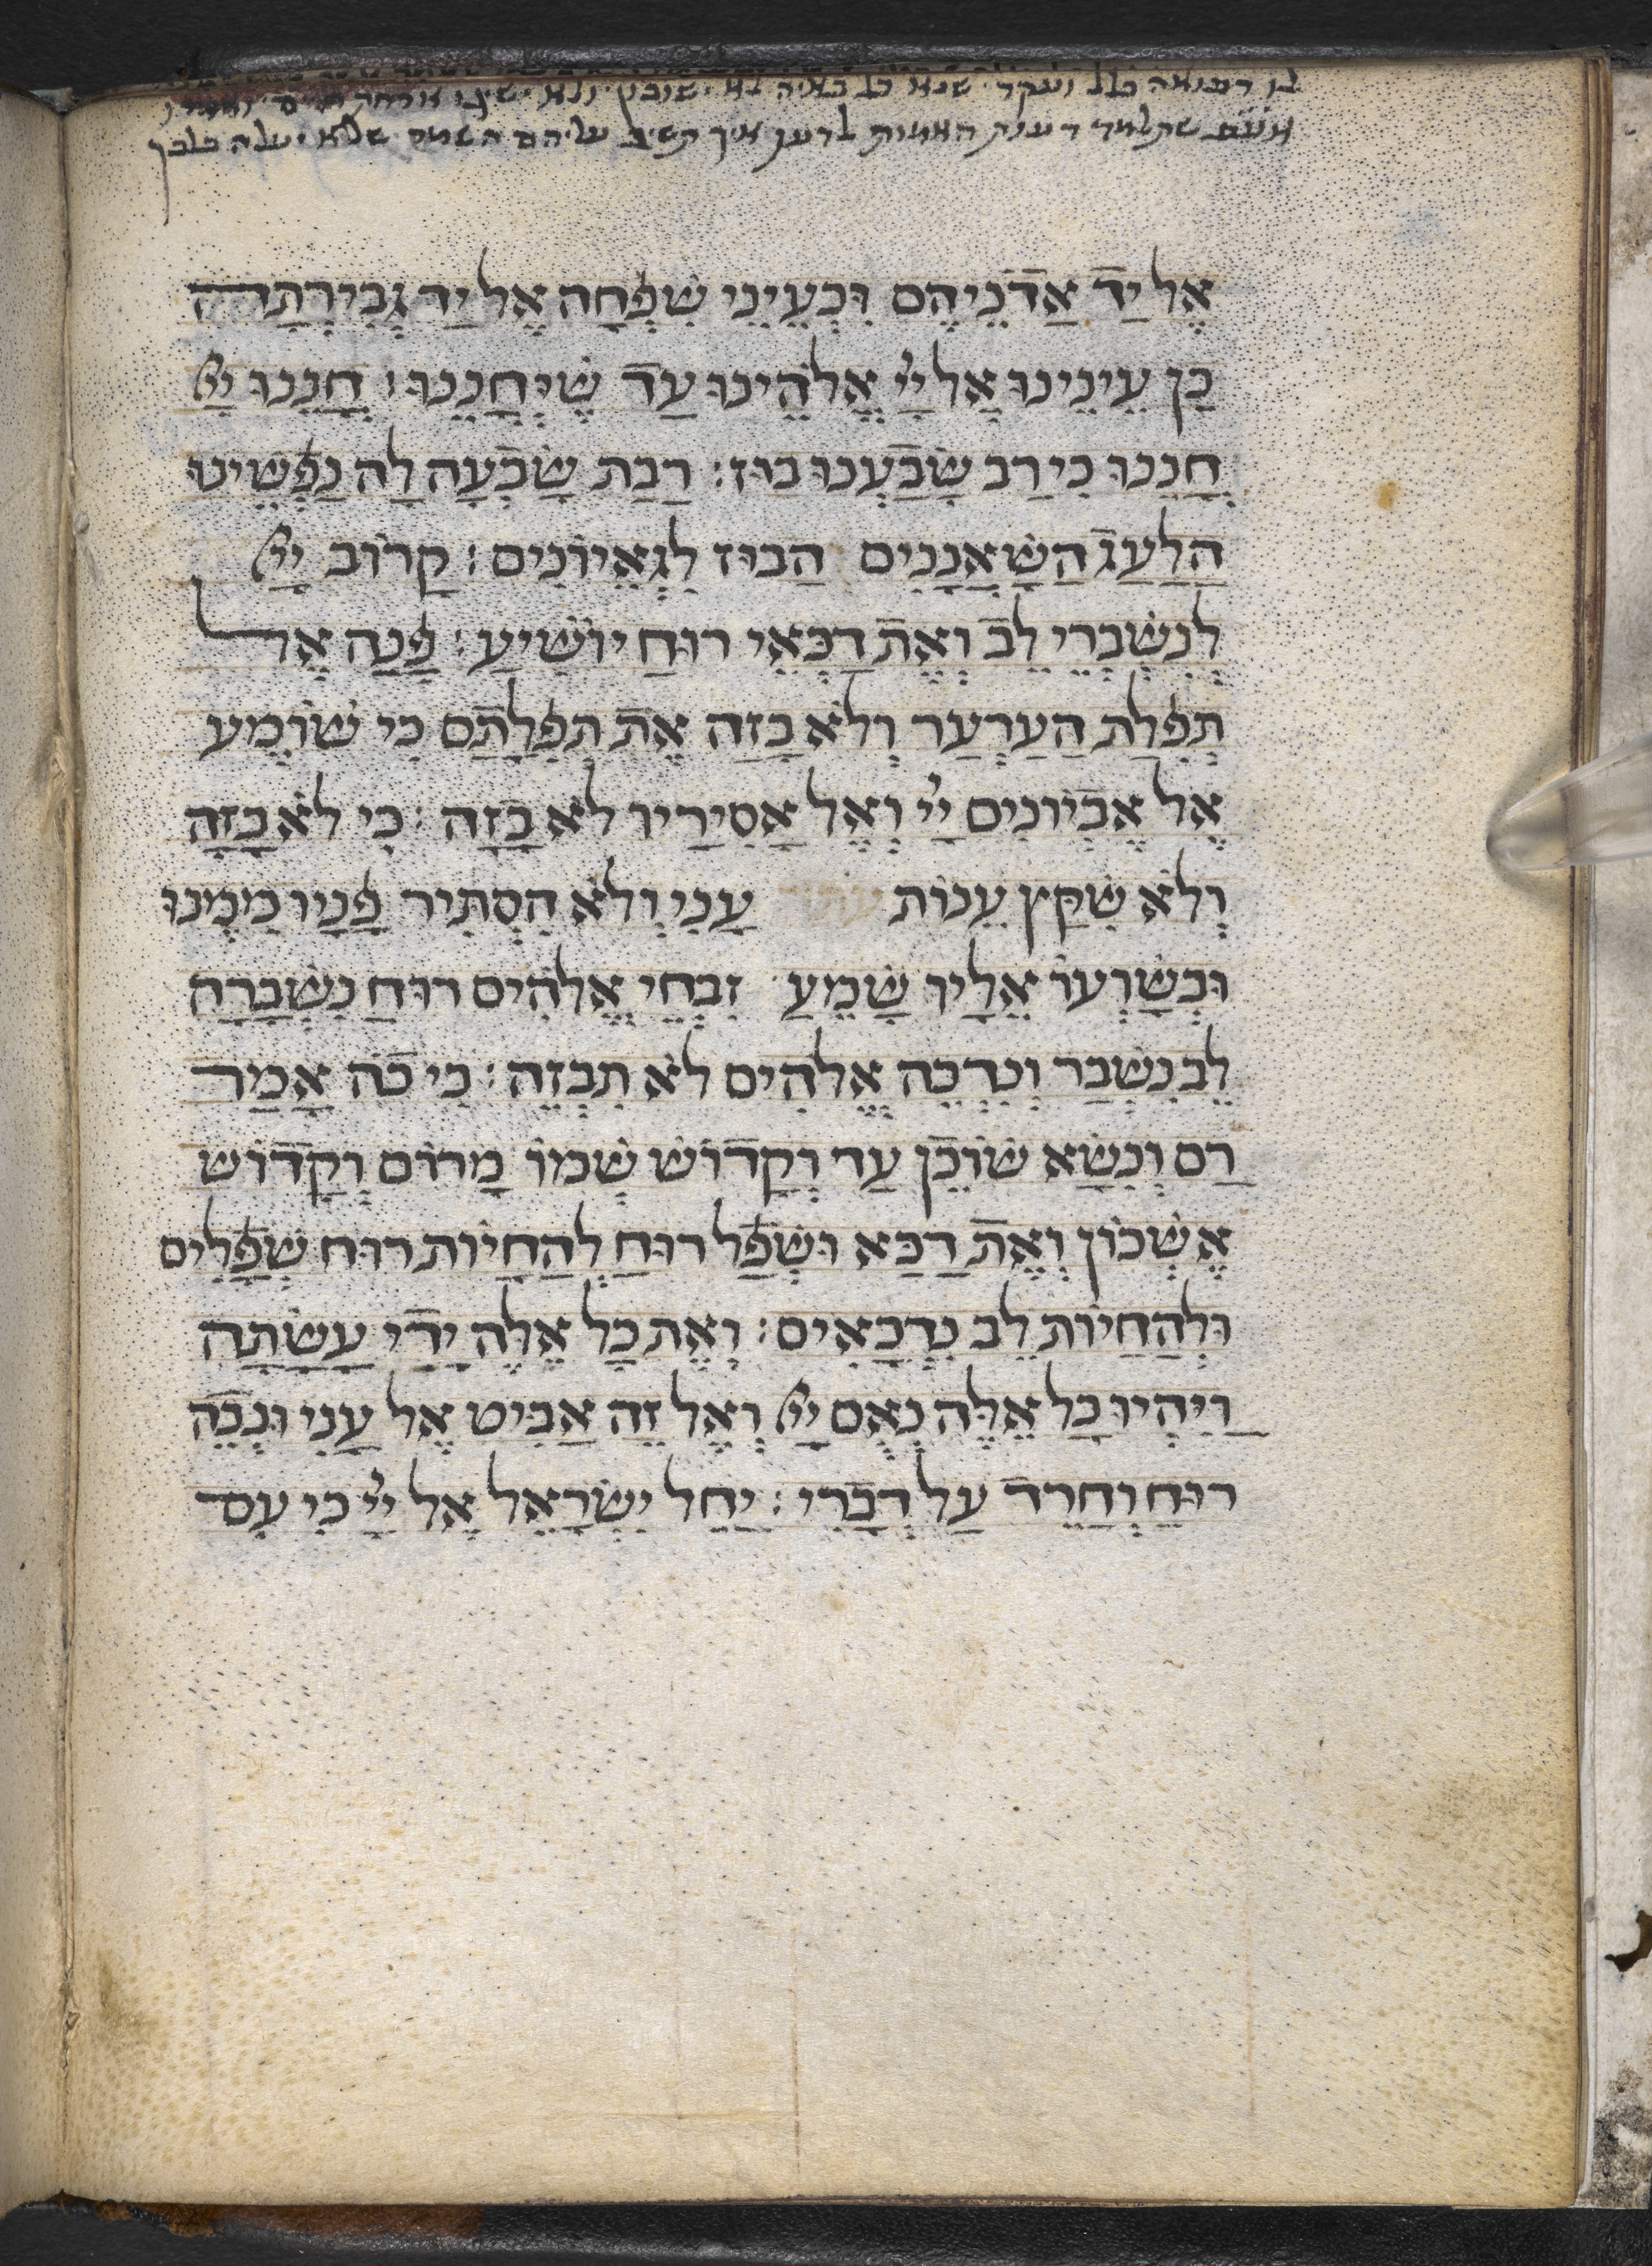 לו רפואה כלל ועקר שנא כל באיה לא ישובון ולא ישיגו ארחת חיים
שתלמד האמות איך תשיב עליהם השמר שלא יעלה בלבך
אֶל יַד אֲדֹנֵיהֶם וּכְעֵינֵי שִׁפְחָה אֶל יַד גְּבִירְתָּהּ
כֵּן עֵינֵינוּ אֶל יְיָ אֱלֹהֵינוּ עַד שֶׁיְּחָנֵּנוּ׃ חָנֵּנוּ יְיָ
חָנֵּנוּ כִּי רַב שָׂבַעְנוּ בוּז׃ רַבַּת שָׂבְעָה לָהּ נַפְשֵׁינוּ
הַלַּעַג הַשַּׁאֲנַנִּים הַבּוּז לִגְאֵיוֹנִים׃ קָרוֹב יְיָ
לְנִשְׁבְּרֵי לֵב וְאֶת דַּכְּאֵי רוּחַ יוֹשִׁיעַ׃ פָּנָה אֶל
תְּפִלַּת הָעַרְעָר וְלֹא בָזָה אֶת תְּפִלָּתָם כִּי שׁוֹמֵעַ
אֶל אֶבְיוֹנִים יְיָ וְאֶל אֲסִירָיו לֹא בָזָה׃ כִּי לֹא בָזָה
וְלֹא שִׁקַּץ עֱנוּת עָנִי וְלֹא הִסְתִּיר פָּנָיו מִמֶּנּוּ
וּבְשַׁוְּעוֹ אֵלָיו שָׁמֵעַ זִבְחֵי אֱלֹהִים רוּחַ נִשְׁבָּרָה
לֵב נִשְׁבָּר וְנִדְכֶּה אֱלֹהִים לֹא תִבְזֶה׃ כִּי כֹה אָמַר
רָם וְנִשָּׂא שׁוֹכֵן עַד וְקָדוֹשׁ שְׁמוֹ מָרוֹם וְקָדוֹשׁ
אֶשְׁכּוֹן וְאֶת דַּכָּא וּשְׁפַל רוּחַ לְהַחֲיוֹת רוּחַ שְׁפָלִים
וּלְהַחֲיוֹת לֵב נִדְכָּאִים׃ וְאֶת כָּל אֵלֶּה יָדִי עָשָׂתָה
וַיִּהְיוּ כָל אֵלֶּה נְאֻם יְיָ וְאֶל זֶה אַבִּיט אֶל עָנִי וּנְכֵה
רוּחַ וְחָרֵד עַל דְּבָרִי׃ יַחֵל יִשְׂרָאֵל אֶל יְיָ כִּי עִם